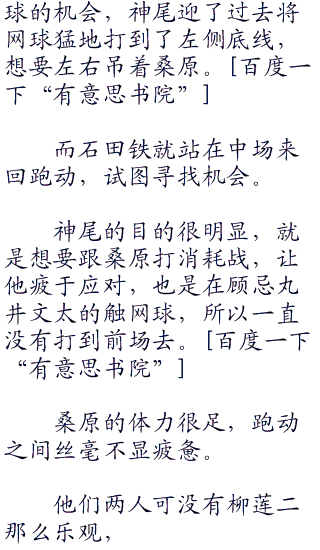 球的机会，神尾迎了过去将
网球猛地打到了左侧底线，
想要左右吊着桑原。[百度一
下“有意思书院”]
而石田铁就站在中场来
回跑动，试图寻找机会。
神尾的目的很明显，就
是想要跟桑原打消耗战，让
他疲于应对，也是在顾忌丸
井文太的触网球，所以一直
没有打到前场去。[百度一下
“有意思书院”]
桑原的体力很足，跑动
之间丝毫不显疲惫。
他们两人可没有柳莲二
那么乐观，